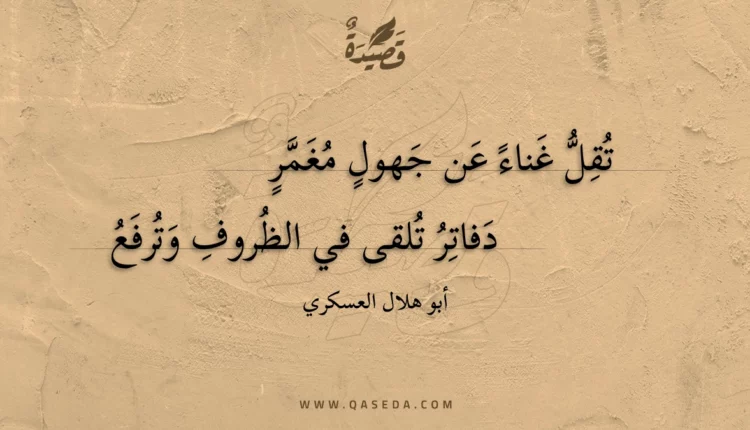 قَصِيدَةٌ
تُقِلُّ غَناءً عَن جَهولٍ مُغَمَّرٍ
دَفاتِرُ تُلقى في الظُروفِ وَتُرفَعُ
أبو هلال العسكري
WWW.QASEDA.COM